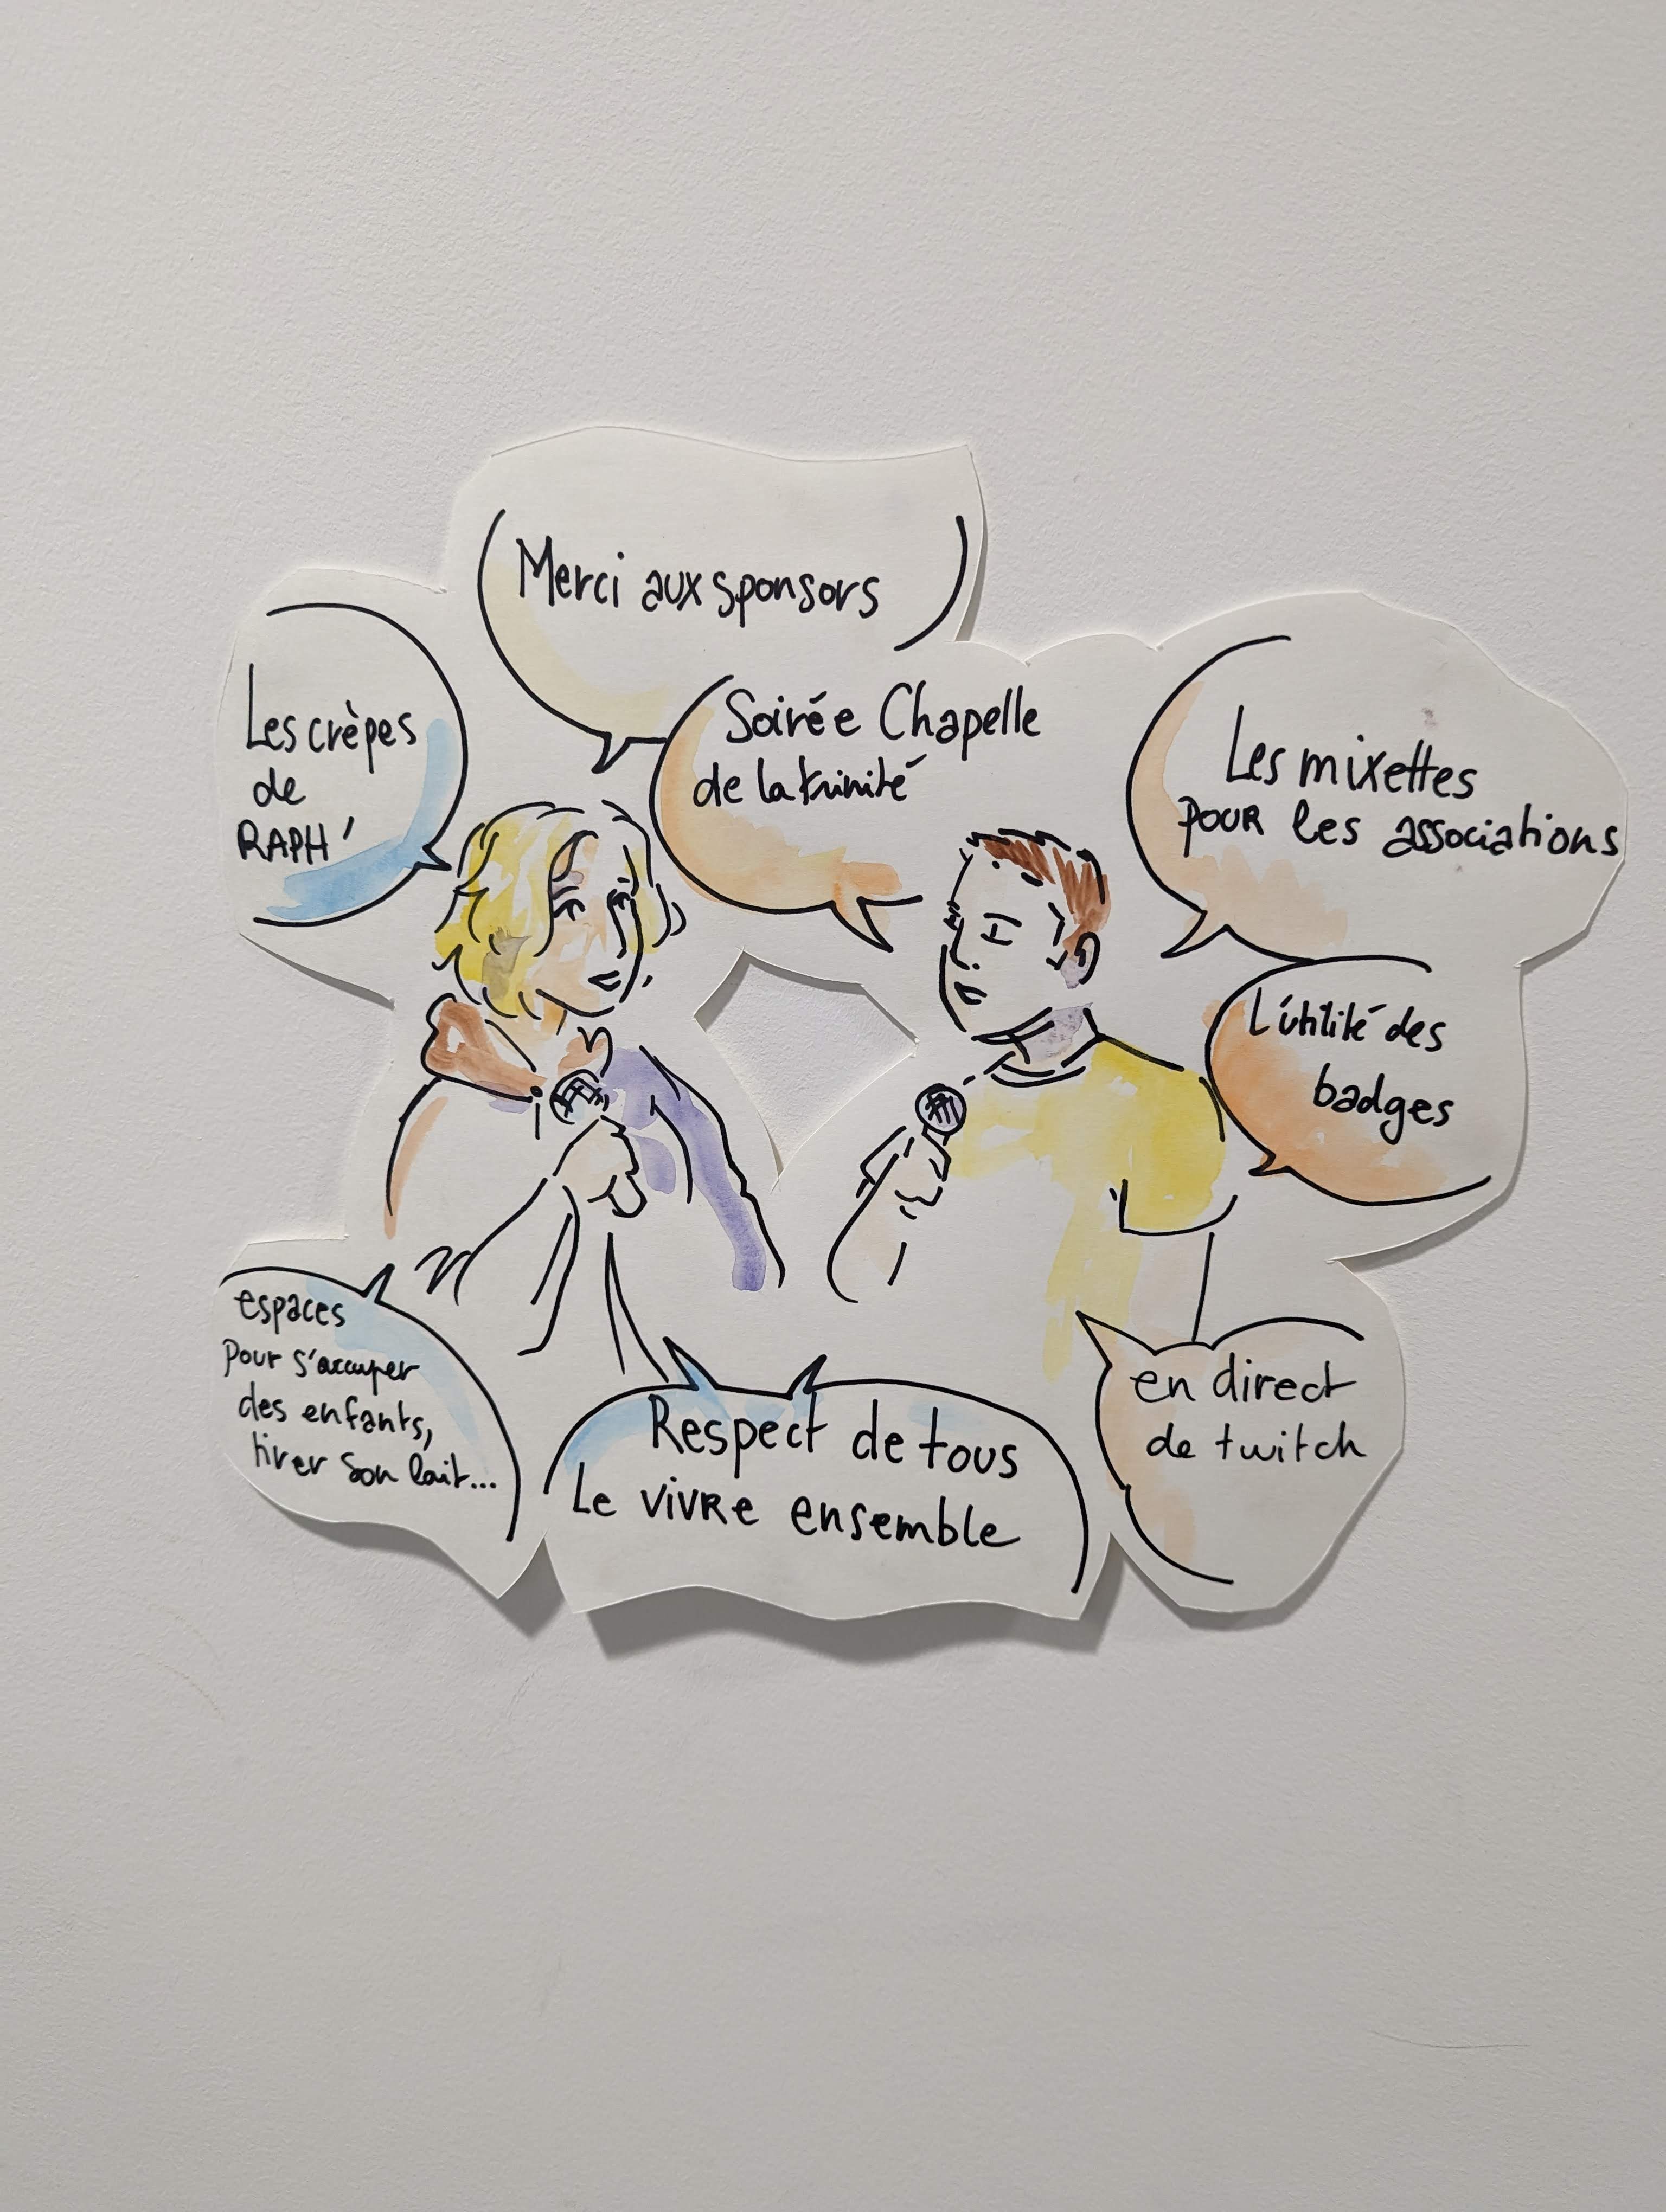 Merci aux sponsors
Les crèpes
de
RAPH'
Soirée Chapelle
de la trinité
Les mixettes
pour les associations
L'utilité des
badges
espaces
pour s'occuper
des enfants,
tirer son lait...
Respect de tous
Le vivre ensemble
en direct
de twitch